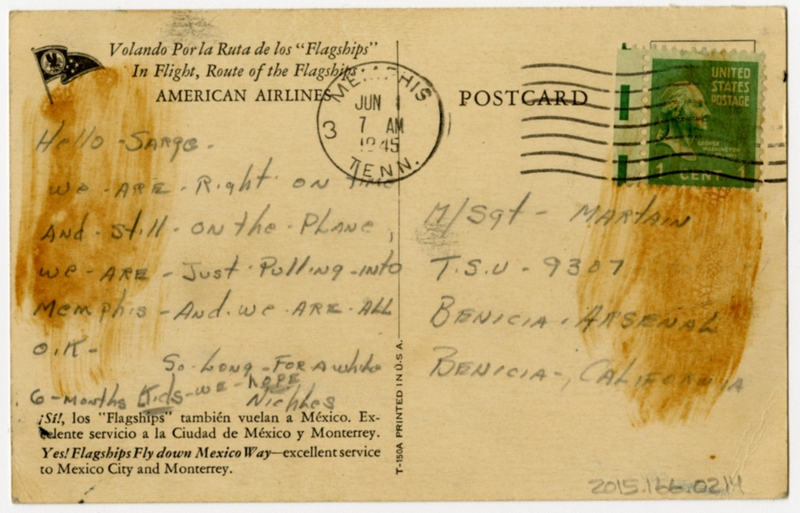 Volando Por la Ruta de los "Flagships"
In Flight, Route of the Flagships
AMERICAN AIRLINES
POSTCARD
MEMPHIS
JUN 1
7 AM
1945
3
TENN.
UNITED
STATES
POSTAGE
GEORGE
WASHINGTON
1 CENT
Hello - Sarge -
we - ARE - Right on Time
And - still - on the - Plane,
we - ARE - Just - Pulling - into
Memphis - And - we - ARE - All
O.K -
So - Long - For A while
6 - months Kids - we - hope
Nichles
M/Sgt - MARTAIN
T.S.U - 9307
BENICIA - ARSENAL
BENICIA -, CALIFORNIA
¡Sí!, los "Flagships" también vuelan a México. Ex-
celente servicio a la Ciudad de México y Monterrey.
Yes! Flagships Fly down Mexico Way—excellent service
to Mexico City and Monterrey.
T-150A PRINTED IN U.S.A.
2015.166.0214